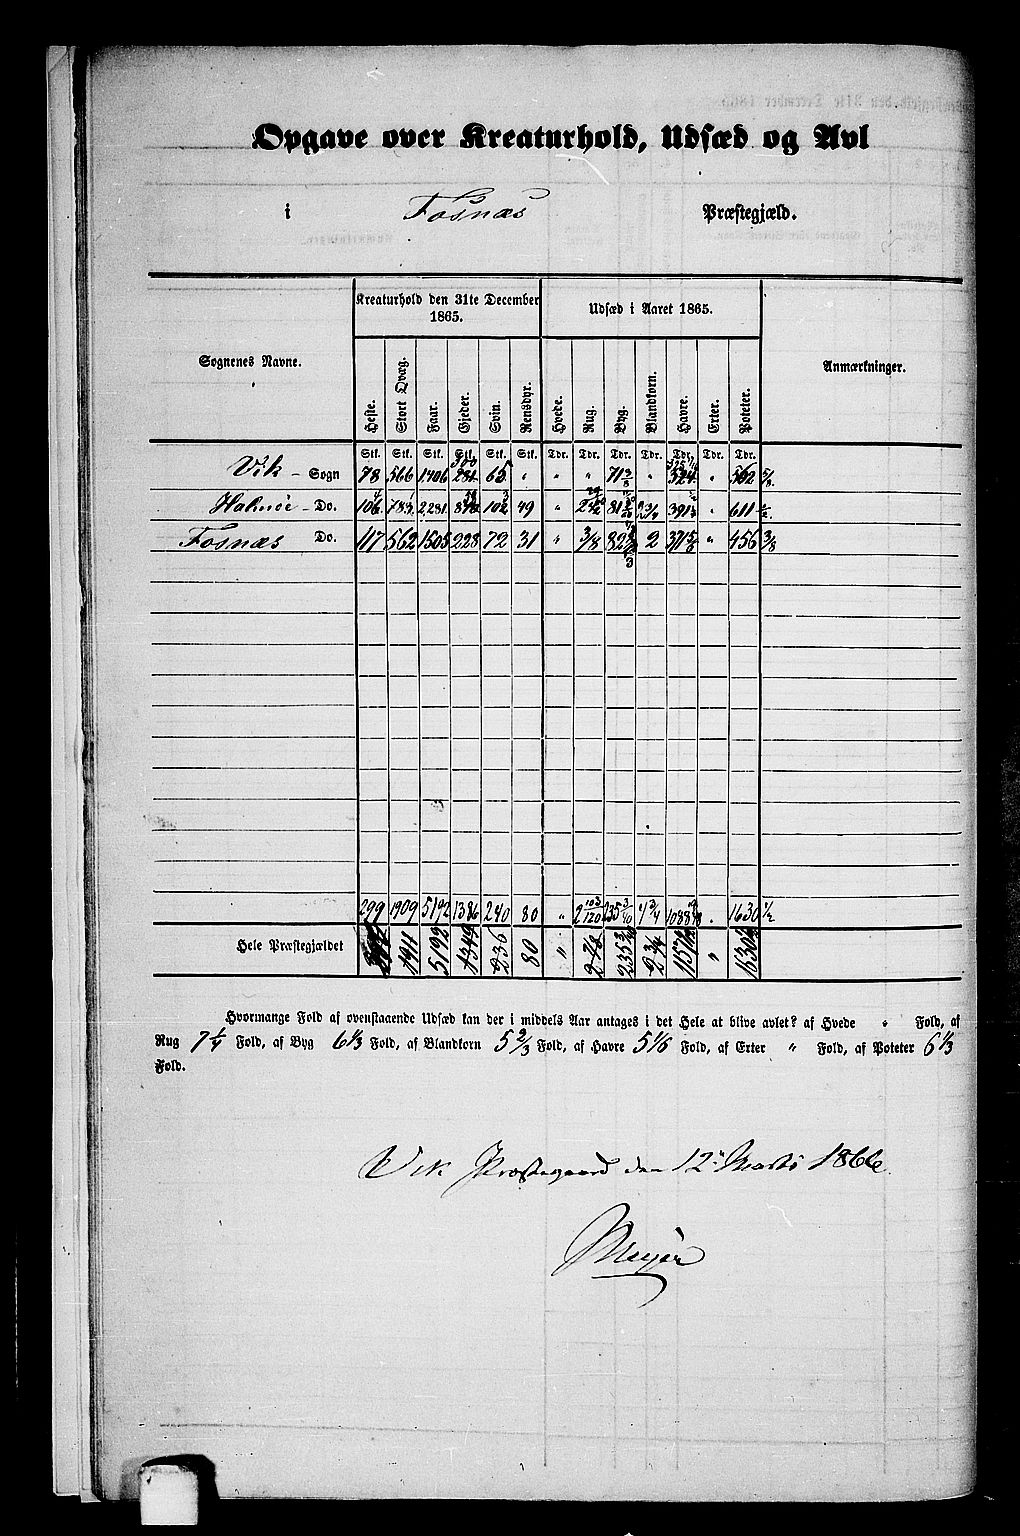 Opgave over Kreaturhold, Udsæd og Avl
i Fosnæs Præstegjæld.
Kreaturhold den 31te December 1865. Udsæd i Aaret 1865.
Sognenes Navne. Heste. Stort Qvæg. Faar. Gjeder. Svin. Rensdyr. Hvede. Rug. Byg. Blandkorn. Havre. Erter. Poteter. Anmærkninger.
Stk. Stk. Stk. Stk. Stk. Stk. Tdr. Tdr. Tdr. Tdr. Tdr. Tdr. Tdr.
Vik Sogn 78 566 1406 281 65 " " " 71 3/8 324 " 562 5/8
Do. 106 783 2281 49 " 81 2 3/4 391 " 611 1/2
Fosnæs Do. 117 562 1505 228 72 31 " 3/8 82 2 371 5/6 " 456 3/8
299 1909 5192 1386 240 80 " 2 103/120 235 3/40 4 3/4 1088 " 1630 1/2
Hele Præstegjældet 1911 5192 1349 236 80 " 2 7/8 235 2 3/4 " 1630
Hvormange Fold af ovenstaaende Udsæd kan der i middels Aar antages i det Hele at blive avlet? af Hvede " Fold, af
Rug 7 1/4 Fold, af Byg 6 1/3 Fold, af Blandkorn 5 2/3 Fold, af Havre 5 1/6 Fold, af Erter " Fold, af Poteter 6 1/3
Fold.
Vik Præstegaard den 12te Marts 1866
Meyer